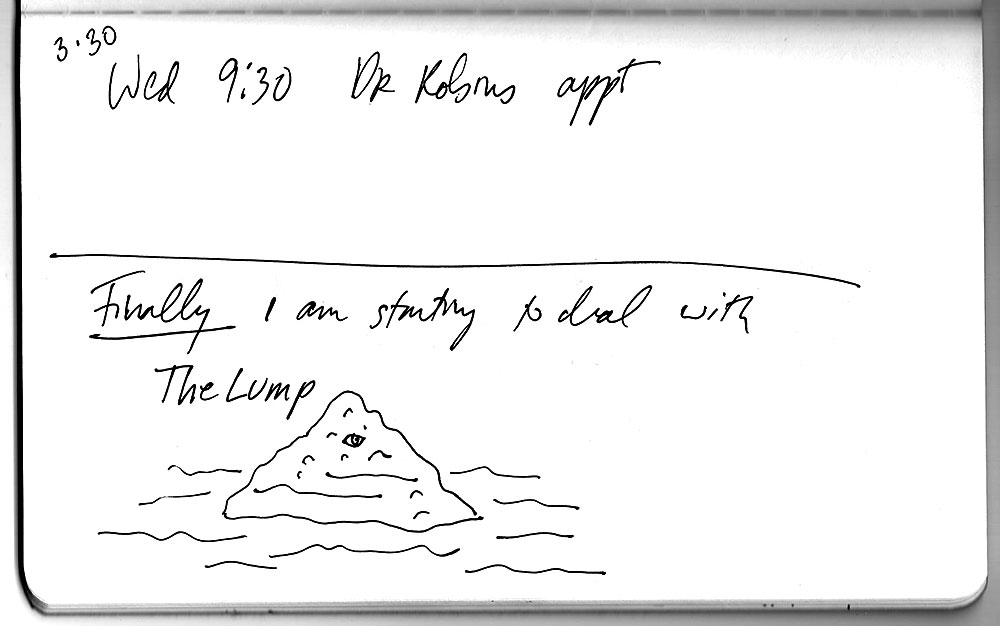 3.30
Wed 9:30 Dr Robins appt
Finally I am starting to deal with
The Lump